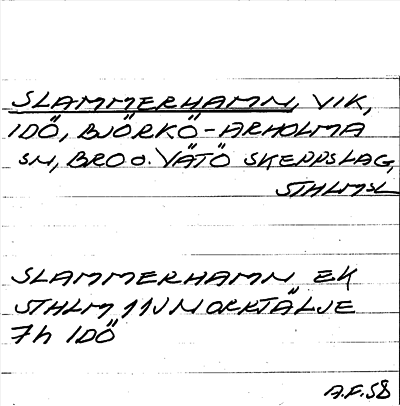 SLAMMERHAMN, VIK,
IDÖ, BJÖRKÖ-ARHOLMA
SN, BRO O. VÄTÖ SKEPPSLAG,
STHLMSL
SLAMMERHAMN EK
STHLM 11J NORRTÄLJE
7h IDÖ
A.F.58